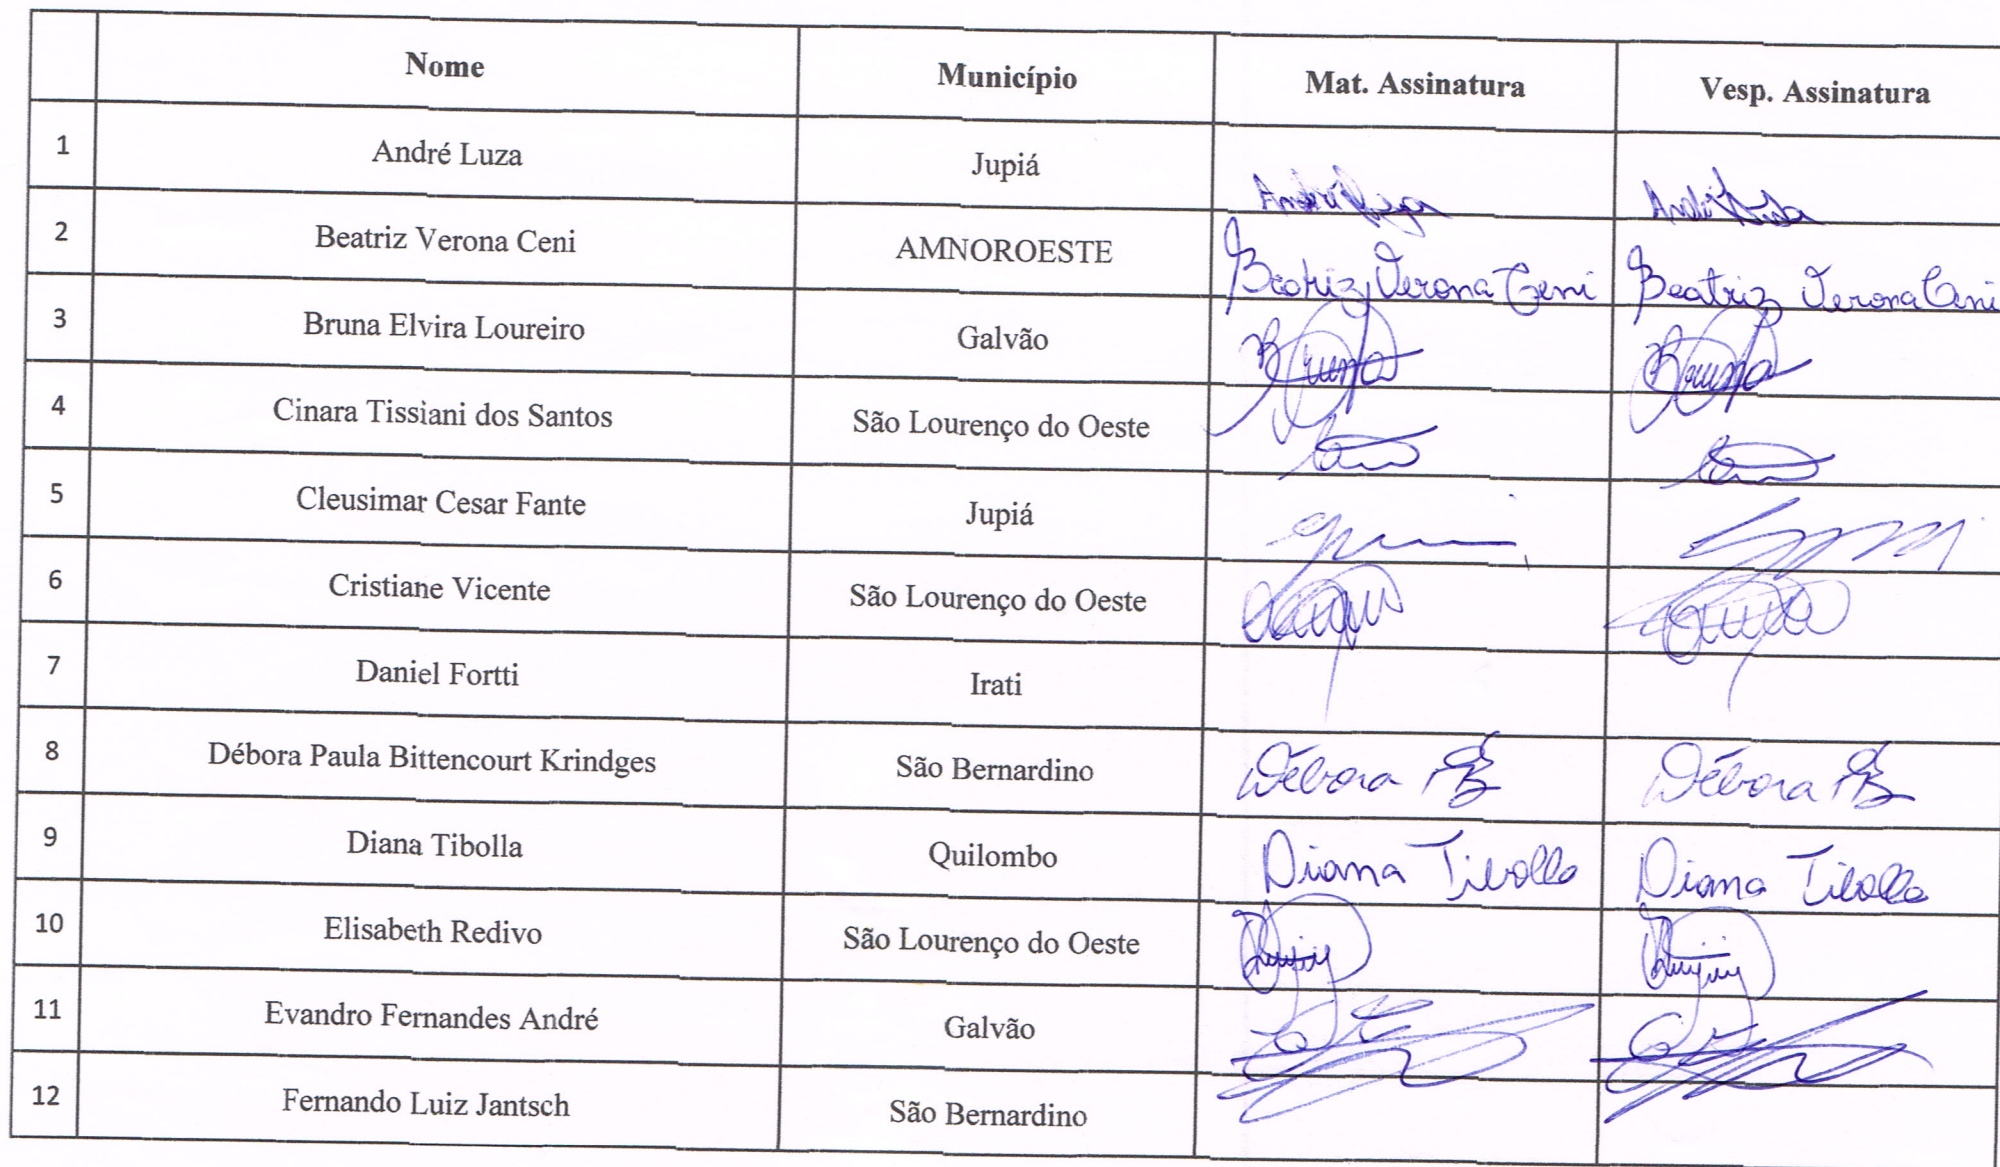 Nome Município Mat. Assinatura Vesp. Assinatura
1 André Luza Jupiá André Luza André Luza
2 Beatriz Verona Ceni AMNOROESTE Beatriz Verona Ceni Beatriz Verona Ceni
3 Bruna Elvira Loureiro Galvão Bruna Bruna
4 Cinara Tissiani dos Santos São Lourenço do Oeste
5 Cleusimar Cesar Fante Jupiá
6 Cristiane Vicente São Lourenço do Oeste
7 Daniel Fortti Irati
8 Débora Paula Bittencourt Krindges São Bernardino Débora Débora
9 Diana Tibolla Quilombo Diana Tibolla Diana Tibolla
10 Elisabeth Redivo São Lourenço do Oeste
11 Evandro Fernandes André Galvão
12 Fernando Luiz Jantsch São Bernardino